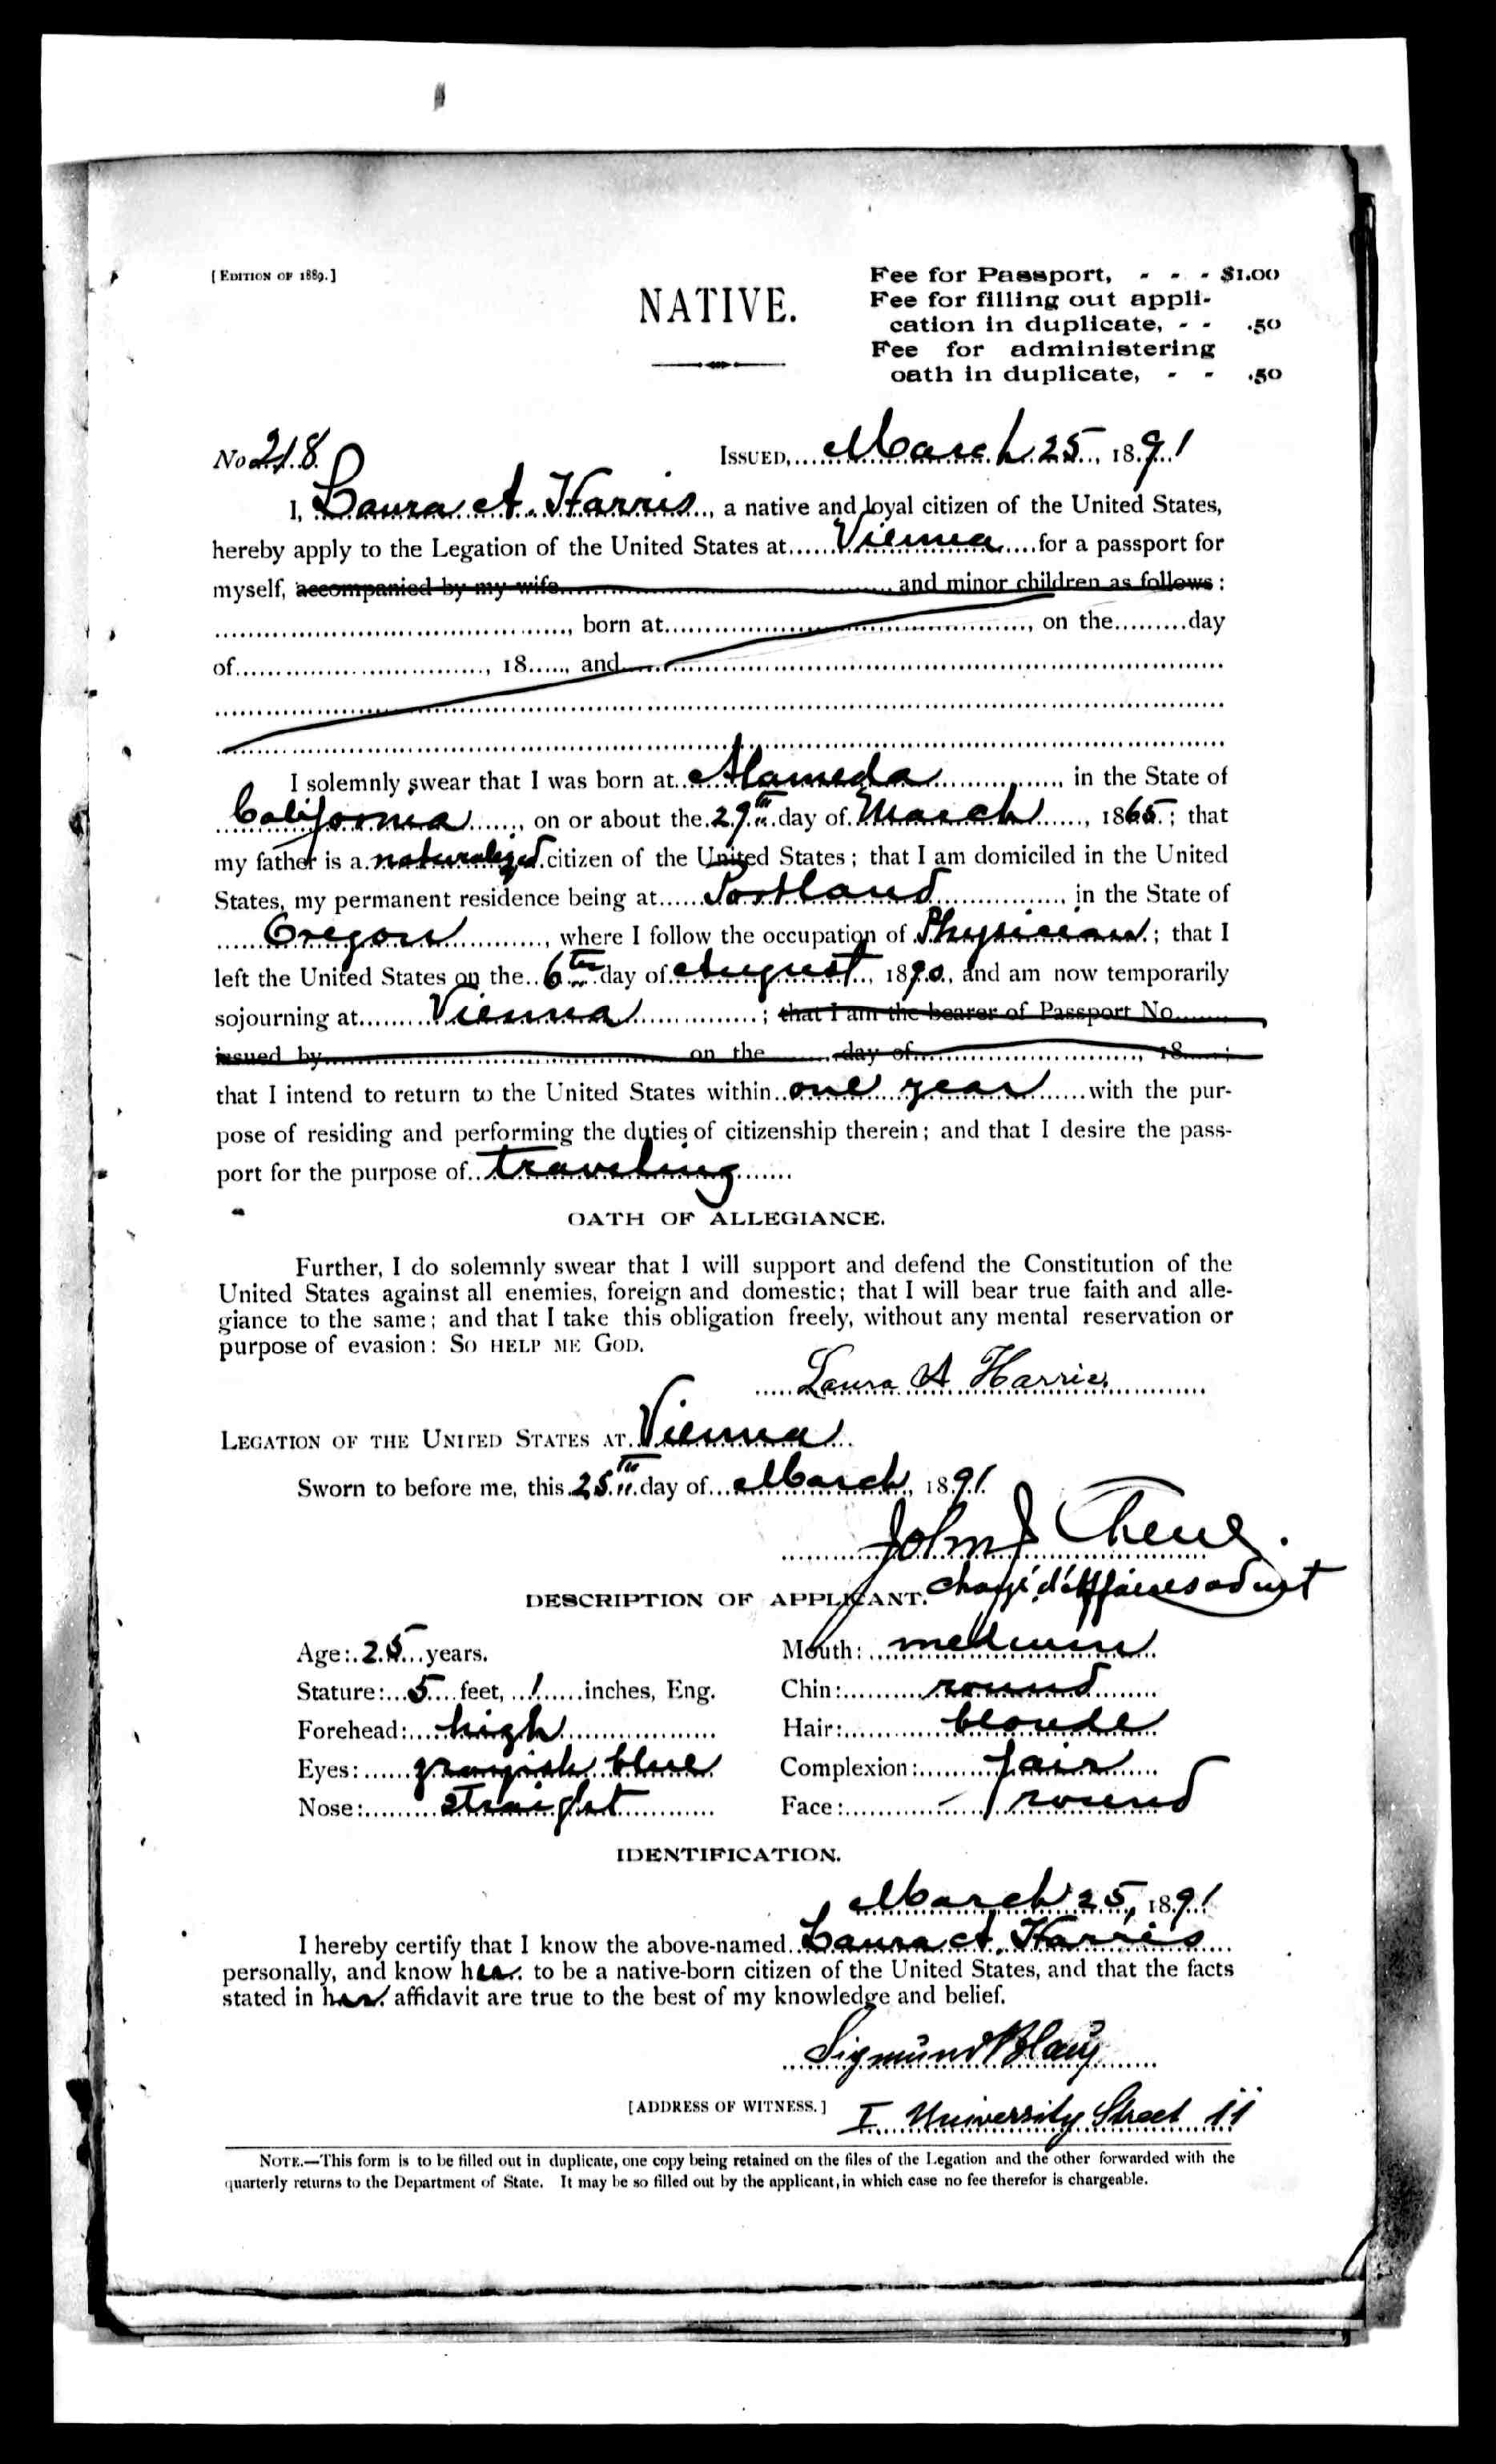 [EDITION OF 1889.]
NATIVE.
Fee for Passport, - - - $1.00
Fee for filling out appli-
cation in duplicate, - - .50
Fee for administering
oath in duplicate, - - .50
No 218. ISSUED, March 25, 1891
I, Laura A. Harris, a native and loyal citizen of the United States,
hereby apply to the Legation of the United States at Vienna for a passport for
myself, accompanied by my wife and minor children as follows:
, born at , on the day
of , 18 , and
I solemnly swear that I was born at Alameda, in the State of
California, on or about the 29th day of March, 1865; that
my father is a naturalized citizen of the United States; that I am domiciled in the United
States, my permanent residence being at Portland, in the State of
Oregon, where I follow the occupation of Physician; that I
left the United States on the 6th day of August, 1890, and am now temporarily
sojourning at Vienna; that I am the bearer of Passport No.
issued by on the day of , 18 ;
that I intend to return to the United States within one year with the pur-
pose of residing and performing the duties of citizenship therein; and that I desire the pass-
port for the purpose of traveling
OATH OF ALLEGIANCE.
Further, I do solemnly swear that I will support and defend the Constitution of the
United States against all enemies, foreign and domestic; that I will bear true faith and alle-
giance to the same; and that I take this obligation freely, without any mental reservation or
purpose of evasion: SO HELP ME GOD.
Laura A Harris
LEGATION OF THE UNITED STATES AT Vienna
Sworn to before me, this 25th day of March, 1891.
John J
Chargé d'Affaires ad int
DESCRIPTION OF APPLICANT.
Age: 25 years. Mouth: medium
Stature: 5 feet, 1 inches, Eng. Chin: round
Forehead: high Hair: blonde
Eyes: grayish blue Complexion: fair
Nose: straight Face: round
IDENTIFICATION.
March 25, 1891
I hereby certify that I know the above-named Laura A. Harris
personally, and know her to be a native-born citizen of the United States, and that the facts
stated in her affidavit are true to the best of my knowledge and belief.
Sigmund Blau
[ADDRESS OF WITNESS.] I University Street 11
NOTE.—This form is to be filled out in duplicate, one copy being retained on the files of the Legation and the other forwarded with the
quarterly returns to the Department of State. It may be so filled out by the applicant, in which case no fee therefor is chargeable.